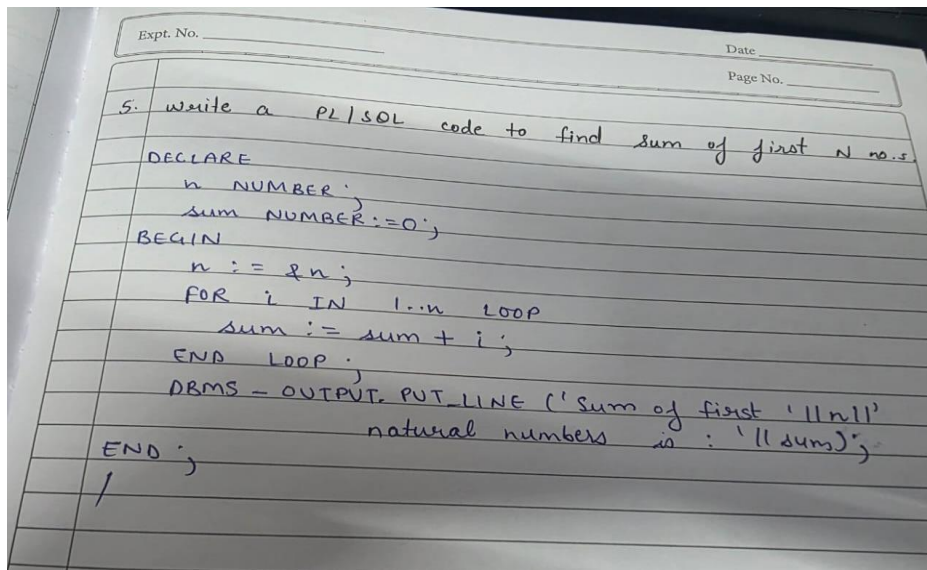 Expt. No.
Date
Page No.
5. Write a PL/SQL code to find sum of first N no.s.
DECLARE
n NUMBER;
sum NUMBER:=0;
BEGIN
n := &n;
FOR i IN 1..n LOOP
sum := sum + i;
END LOOP;
DBMS_OUTPUT.PUT_LINE ('Sum of first '||n||'
natural numbers is : '|| sum);
END;
/